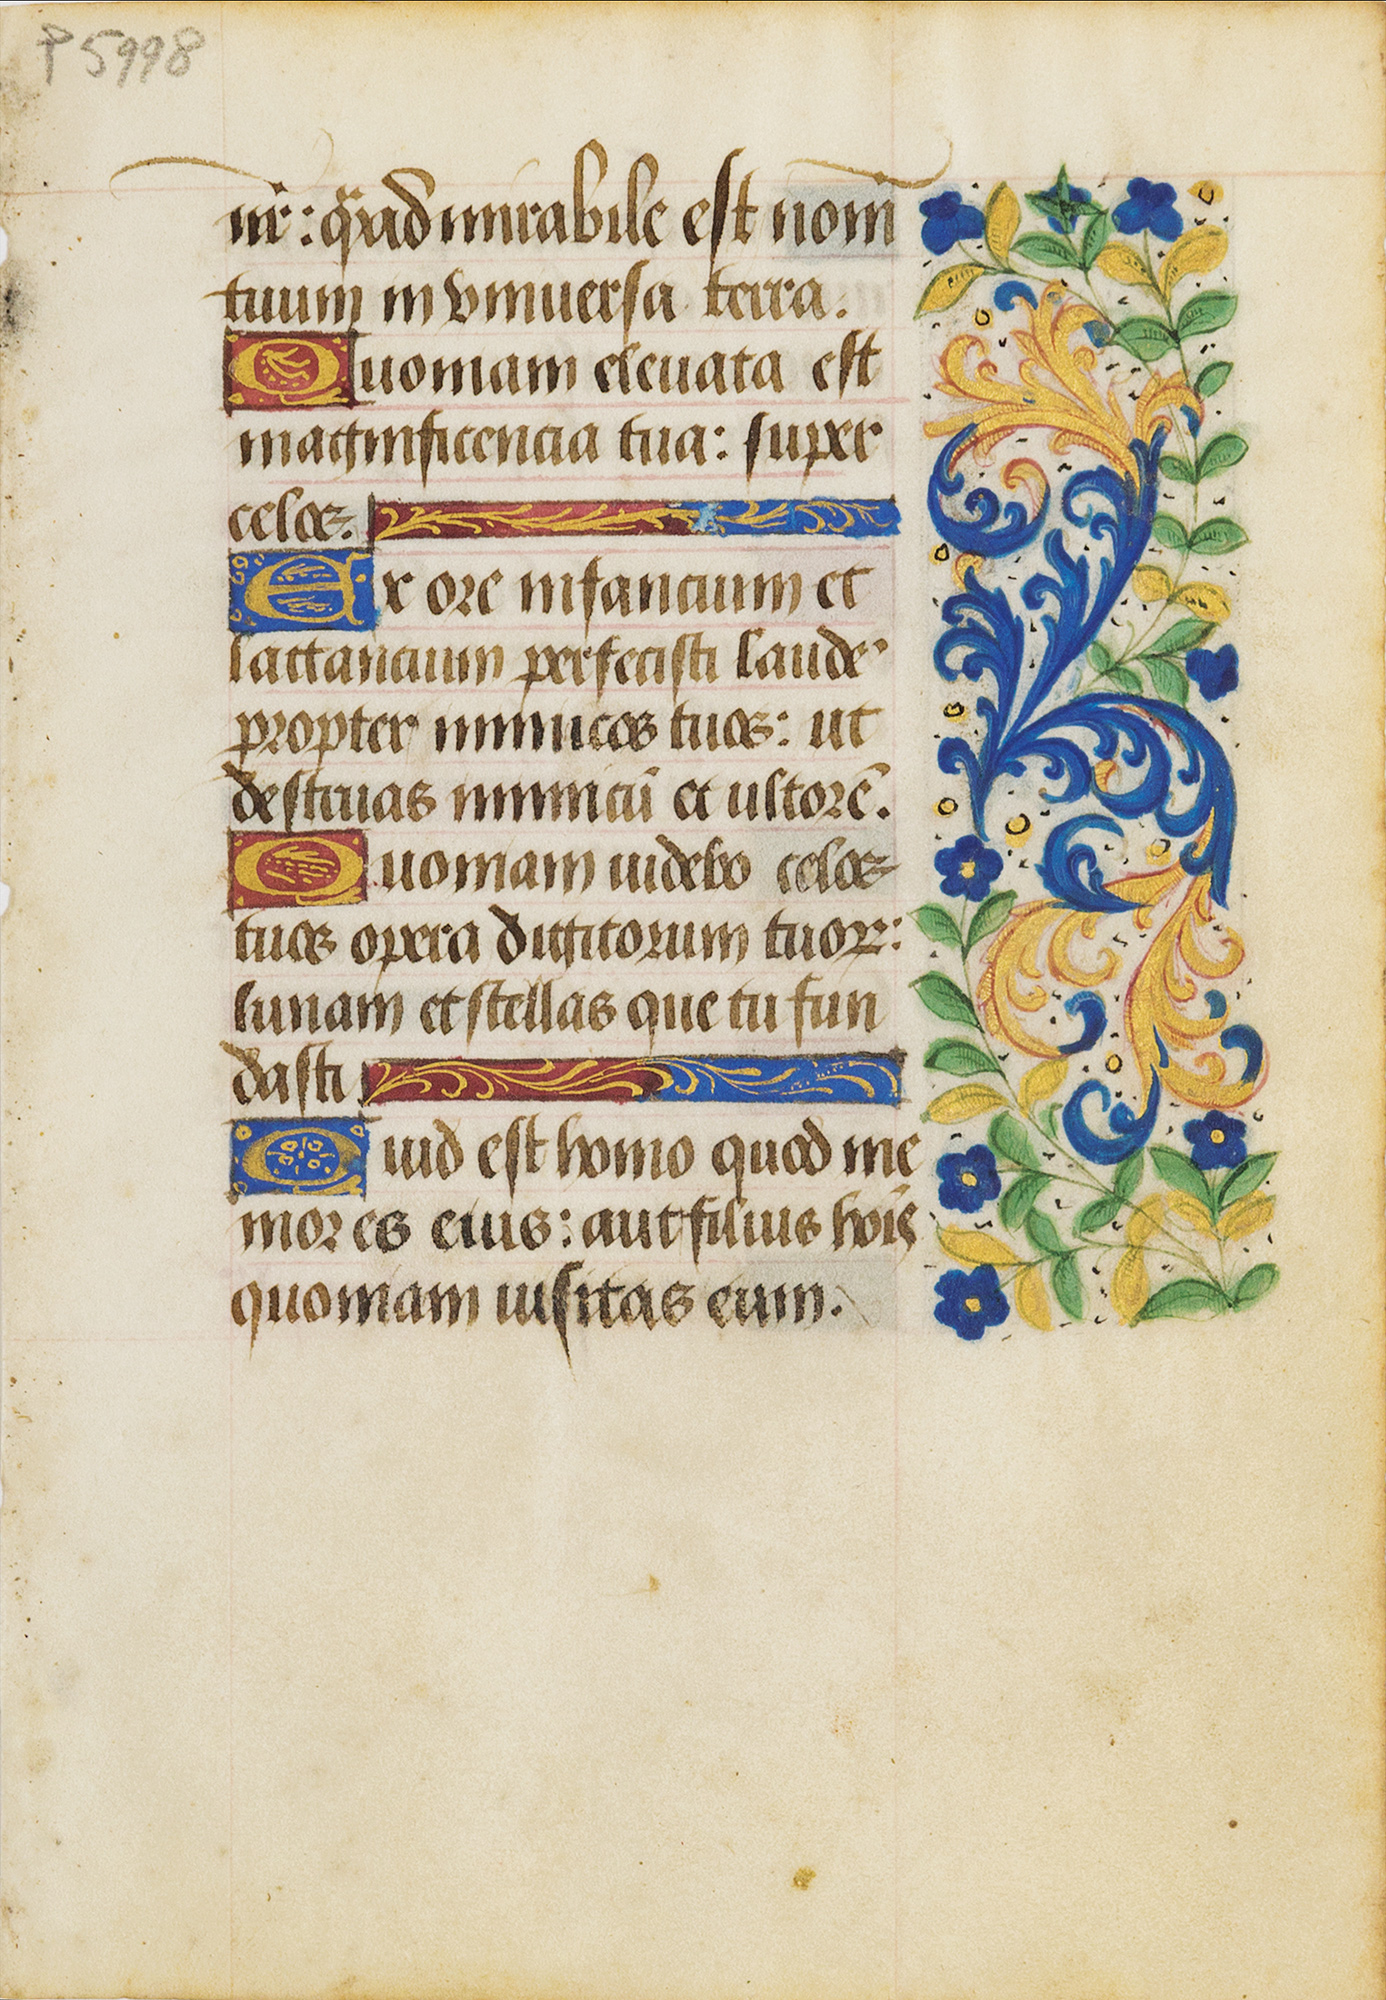 P 5998
nr̄: q̄ad mirabile est nom̄
tuum in vniuersa terra.
Quoniam eleuata est
magnificencia tua: super
celos.
Ex ore infancium et
lactancium perfecisti laudē
propter inimicos tuos: ut
destruas inimicū et ultorē.
Quoniam uidebo celos
tuos opera digitorum tuoꝝ:
lunam et stellas que tu fun
dasti
Quid est homo quod me
mor es eius: aut filius hoīs
quoniam uisitas eum.